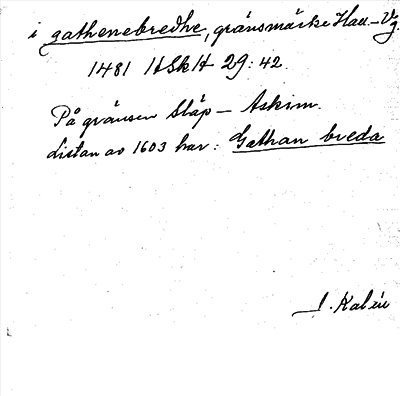 i gathenebredhe, gränsmärke Hall-Vg.
1481 HSkH 29:42.
På gränsen Släp - Askim.
Listan av 1603 har: Gathan breda
J. Kalén